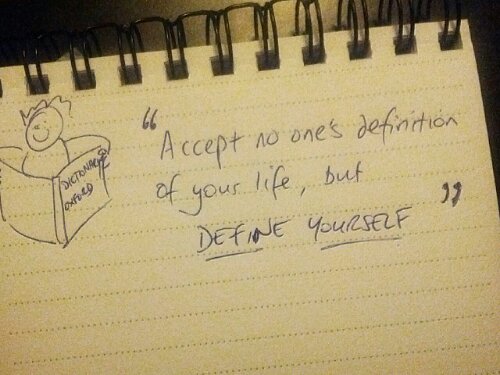 "Accept no one's definition
of your life, but
DEFINE YOURSELF"
DICTIONARY
OXFORD